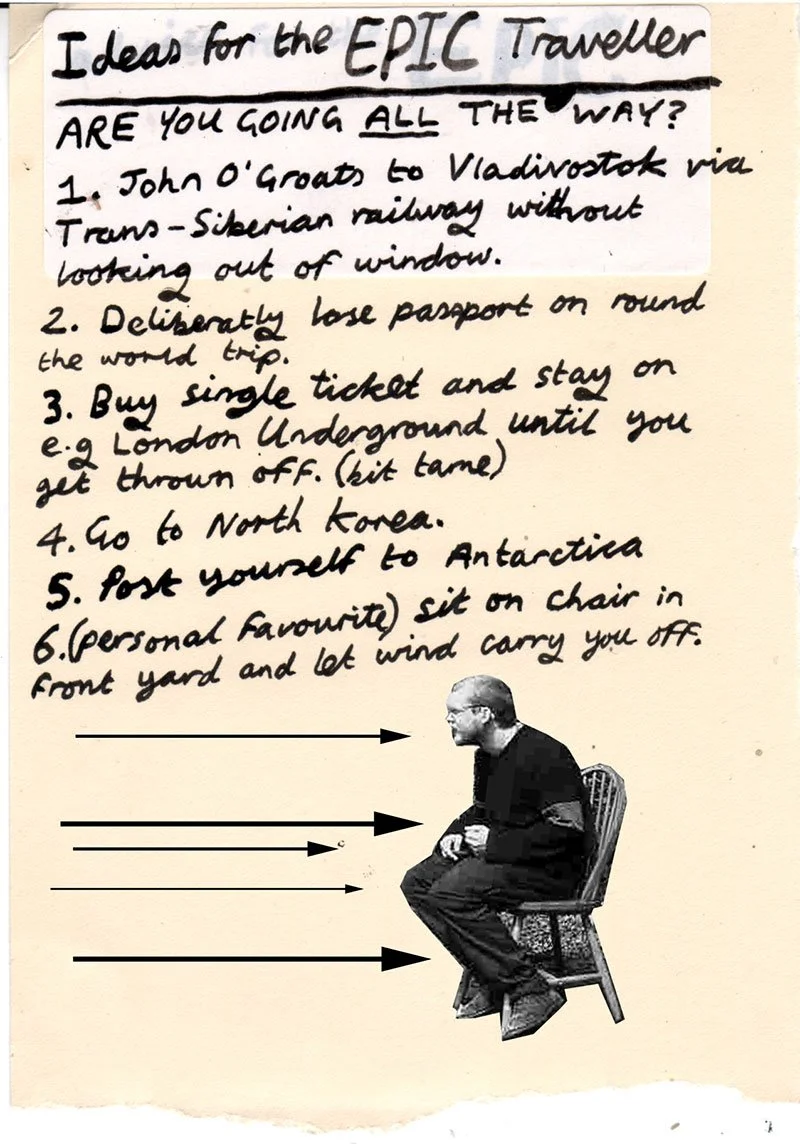 Ideas for the EPIC Traveller
ARE YOU GOING ALL THE WAY?
1. John O'Groats to Vladivostok via
Trans-Siberian railway without
looking out of window.
2. Deliberatly lose passport on round
the world trip.
3. Buy single ticket and stay on
e.g London Underground until you
get thrown off. (bit tame)
4. Go to North Korea.
5. Post yourself to Antarctica
6. (personal favourite) sit on chair in
front yard and let wind carry you off.